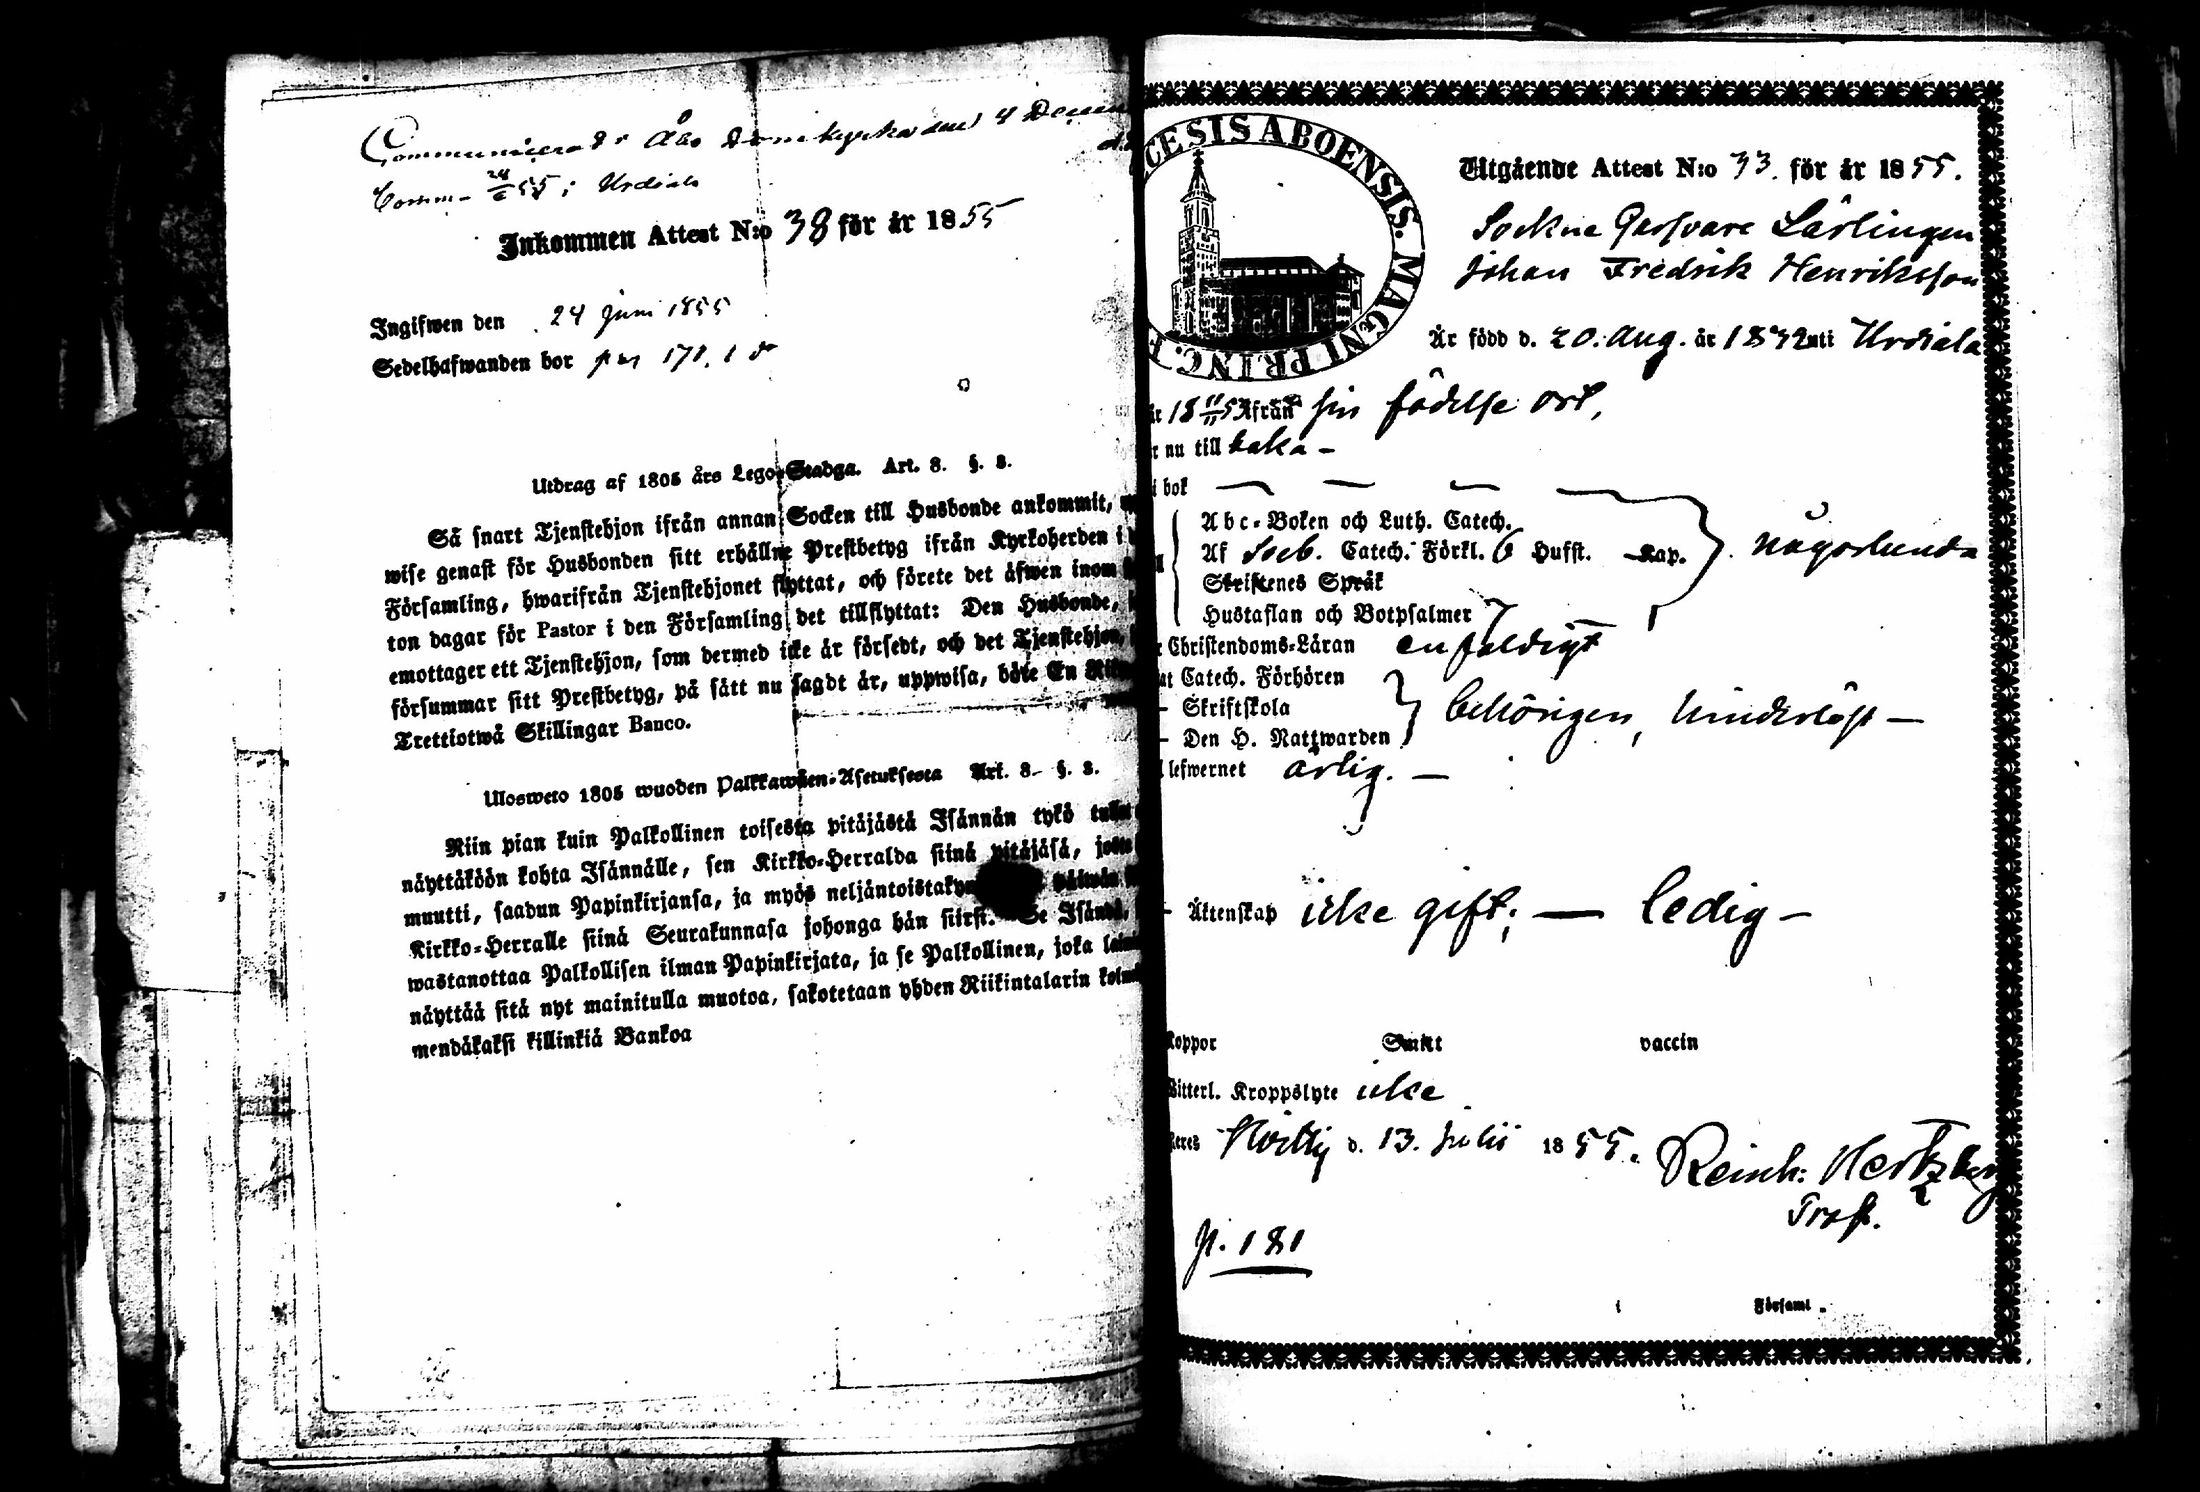 Communicerad i Åbo Domkyrka den 4 Decem
Comm. 24/6 55 i Urdiala
Inkommen Attest N:o 38 för år 1855
Ingifwen den 24 juni 1855
Sedelhafwanden bor pag 171.
Utdrag af 1805 års Lego-Stadga. Art. 8. §. 3.
Så snart Tjenstehjon ifrån annan Socken till Husbonde ankommit,
wise genast för Husbonden sitt erhållne Prestbetyg ifrån Kyrkoherden i
Församling, hwarifrån Tjenstehjonet flyttat, och förete det äfwen inom
ton dagar för Pastor i den Församling det tillflyttat: Den Husbonde,
emottager ett Tjenstehjon, som dermed icke är försedt, och det Tjenstehjon,
försummar sitt Prestbetyg, på sätt nu sagdt är, uppwisa, böte En
Trettiotwå Skillingar Banco.
Ulosweto 1805 wuoden Palkkawäen-Asetuksesta Art. 8. §. 3.
Niin pian kuin Palkollinen toisesta pitäjästä Isännän tykö
näyttäköön kohta Isännälle, sen Kirkko-Herralda siinä pitäjäsä,
muutti, saadun Papinkirjansa, ja myös päiwän
Kirkko-Herralle siinä Seurakunnasa johonga hän siirsi. Se
wastanottaa Palkollisen ilman Papinkirjata, ja se Palkollinen, joka
näyttää sitä nyt mainitulla muotoa, sakotetaan yhden Riikintalarin
mendäkaksi killinkiä Bankoa
CESIS ABOENSIS. MAGNI PRINC. F
Utgående Attest N:o 33. för år 1855.
Sockne Garfvare Lärlingen
Johan Fredrik Henriksson
Är född d. 20. Aug. år 1832 uti Urdiala
ifrån sin födelse ort,
nu till baka –
i bok
Abc-Boken och Luth. Catech.
Af Sveb. Catech. Förkl. 6 Hufst. Kap. någorlunda
Skriftenes Språk
Hustaflan och Botpsalmer
Christendoms-Läran enfaldigt
Catech. Förhören
– Skriftskola behörigen, hinderlöst –
– Den H. Nattwarden
lefwernet ärlig. –
Äktenskap icke gift; — ledig –
Koppor Smitt vaccin
Witterl. Kroppslyte icke
Hvittis d. 13. Julii 1855. Reinh: Hertzberg
Prost.
p. 181
Församl.